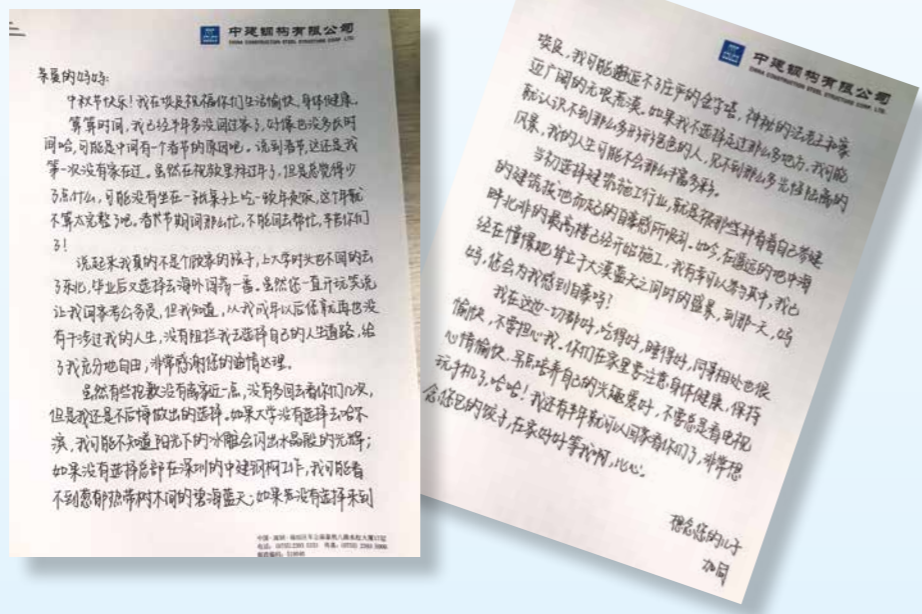 中建钢构有限公司
CHINA CONSTRUCTION STEEL STRUCTURE CORP. LTD.
亲爱的妈妈:
中秋节快乐!我在埃及祝福你们生活愉快,身体健康。
算算时间,我已经半年多没回过家了,好像也没多长时
间哈,可能是中间有一个春节的原因吧。说到春节,这还是我
第一次没有在家过。虽然在视频里拜过年了,但是总觉得少
了点什么,可能没有坐在一张桌子上吃一顿年夜饭,这个年就
不算太完整了吧。春节期间那么忙,不能回去帮忙,辛苦你们
了!
说起来我真的不是个顾家的孩子,上大学时义无反顾的去
了东北,毕业后又选择去海外闯荡一番。虽然您一直开玩笑说
让我回家考公务员,但我知道,从我成年以后您就再也没
有干涉过我的人生,没有阻拦我去选择自己的人生道路,给
了我充分地自由,非常感谢您的通情达理。
虽然有些抱歉没有离家近一点,没有多回去看你们几次,
但是我还是不后悔做出的选择。如果大学没有选择去哈尔
滨,我可能不知道阳光下的冰雕会闪出水晶般的光辉;
如果没有选择总部在深圳的中建钢构工作,我可能看
不到葱郁热带树木间的碧海蓝天;如果没有选择来到
中建钢构有限公司
CHINA CONSTRUCTION STEEL STRUCTURE CORP. LTD.
埃及,我可能邂逅不了庄严的金字塔,神秘的法老王和豪
迈广阔的无垠荒漠。如果我不选择去过那么多地方,我可能
就认识不到那么多形形色色的人,见不到那么多光怪陆离的
风景,我的人生可能不会那么丰富多彩。
当初选择建筑施工行业,就是被那些种看着自己参建
的建筑拔地而起的自豪感所吸引。如今,在遥远的地中海
畔北非的最高楼已经开始施工,我有幸可以参与其中,我已
经在憧憬她耸立于大漠蓝天之间时的盛景,到那一天,妈
妈,您会为我感到自豪吗?
我在这边一切都好,吃得好,睡得好,同事相处也很
愉快,不要担心我。你们在家里要注意身体健康,保持
心情愉快,早点培养自己的兴趣爱好,不要总是看电视
玩手机了,哈哈!我还有半年就可以回家看你们了,非常想
念您包的饺子,在家好好等我啊,比心。
想念您的儿子